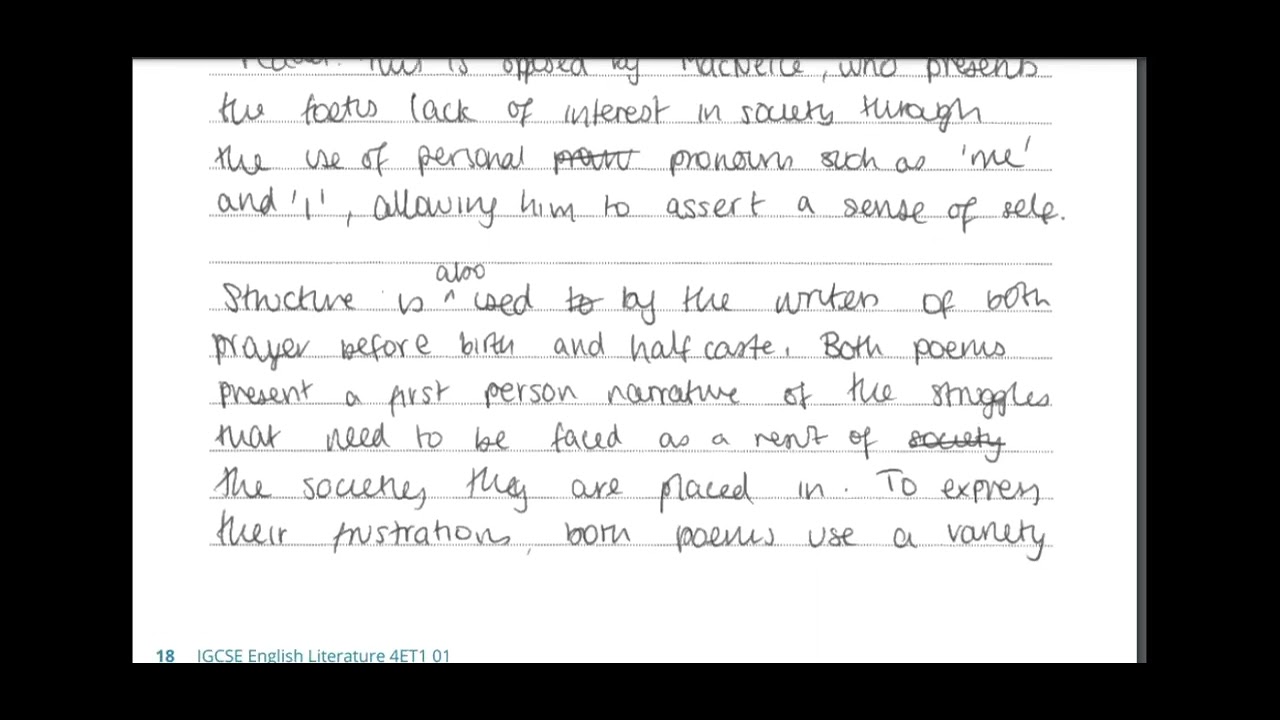 reader. This is opposed by MacNeice, who presents
the foetus lack of interest in society through
the use of personal pronouns such as 'me'
and 'I', allowing him to assert a sense of self.
also
Structure is ^ used to by the writers of both
prayer before birth and half caste. Both poems
present a first person narrative of the struggles
that need to be faced as a of society
the societies they are placed in. To express
their frustrations, both poems use a variety
18 IGCSE English Literature 4ET1 01